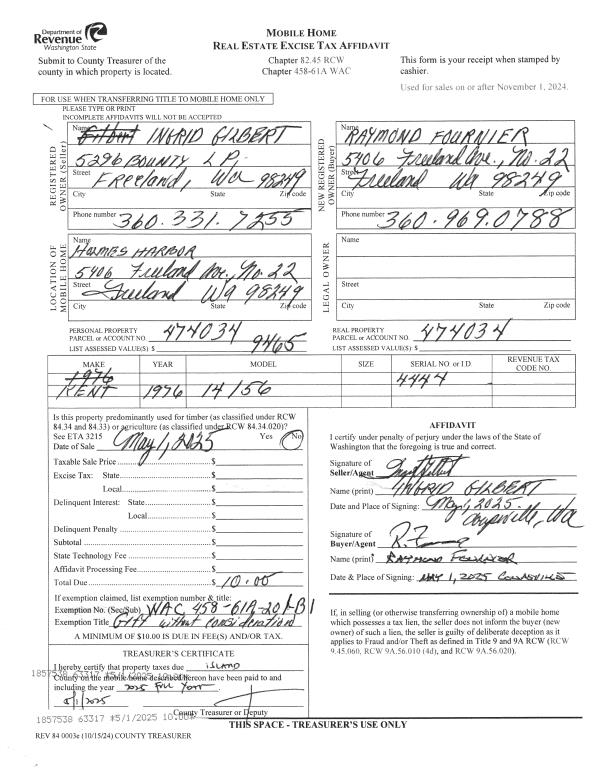 Department of
Revenue
Washington State
MOBILE HOME
REAL ESTATE EXCISE TAX AFFIDAVIT
Submit to County Treasurer of the
county in which property is located.
Chapter 82.45 RCW
Chapter 458-61A WAC
This form is your receipt when stamped by
cashier.
Used for sales on or after November 1, 2024.
FOR USE WHEN TRANSFERRING TITLE TO MOBILE HOME ONLY
PLEASE TYPE OR PRINT
INCOMPLETE AFFIDAVITS WILL NOT BE ACCEPTED
REGISTERED
OWNER (Seller)
Name
Gilbert INGRID GILBERT
5296 BOUNTY LP.
Street
FREELAND, Wa 98249
City State Zip code
Phone number 360.331.7255
NEW REGISTERED
OWNER (Buyer)
Name
RAYMOND FOURNIER
5406 Freeland Ave., No. 22
Street
Freeland Wa 98249
City State Zip code
Phone number 360.969.0788
LOCATION OF
MOBILE HOME
Name
HOLMES HARBOR
5406 Freeland Ave., No. 22
Street
Freeland Wa 98249
City State Zip code
LEGAL OWNER
Name
Street
City State Zip code
PERSONAL PROPERTY
PARCEL or ACCOUNT NO. 474034
LIST ASSESSED VALUE(S) $ 9465
REAL PROPERTY
PARCEL or ACCOUNT NO. 474034
LIST ASSESSED VALUE(S) $
MAKE YEAR MODEL SIZE SERIAL NO. or I.D. REVENUE TAX CODE NO.
1976
KENT 1976 14/56 4444
Is this property predominantly used for timber (as classified under RCW
84.34 and 84.33) or agriculture (as classified under RCW 84.34.020)?
See ETA 3215 Yes No
Date of Sale May 1, 2025
Taxable Sale Price $
Excise Tax: State $
Local $
Delinquent Interest: State $
Local $
Delinquent Penalty $
Subtotal $
State Technology Fee $
Affidavit Processing Fee $
Total Due $ 10.00
If exemption claimed, list exemption number & title:
Exemption No. (Sec/Sub) WAC 458-61A-201-B1
Exemption Title Gift without consideration
A MINIMUM OF $10.00 IS DUE IN FEE(S) AND/OR TAX.
AFFIDAVIT
I certify under penalty of perjury under the laws of the State of
Washington that the foregoing is true and correct.
Signature of
Seller/Agent
Name (print) INGRID GILBERT
Date and Place of Signing: May 1, 2025
Coupeville, Wa
Signature of
Buyer/Agent
Name (print) RAYMOND FOURNIER
Date & Place of Signing: MAY 1, 2025 COUPEVILLE
TREASURER'S CERTIFICATE
I hereby certify that property taxes due ISLAND
County on the mobile home described hereon have been paid to and
including the year 2025 Full Year
5/1/2025
County Treasurer or Deputy
1857538 63317 *5/1/2025 10.00*
1857538 63317 *5/1/2025 10.00*
If, in selling (or otherwise transferring ownership) of a mobile home
which possesses a tax lien, the seller does not inform the buyer (new
owner) of such a lien, the seller is guilty of deliberate deception as it
applies to Fraud and/or Theft as defined in Title 9 and 9A RCW (RCW
9.45.060, RCW 9A.56.010 (4d), and RCW 9A.56.020).
THIS SPACE - TREASURER'S USE ONLY
REV 84 0003e (10/15/24) COUNTY TREASURER